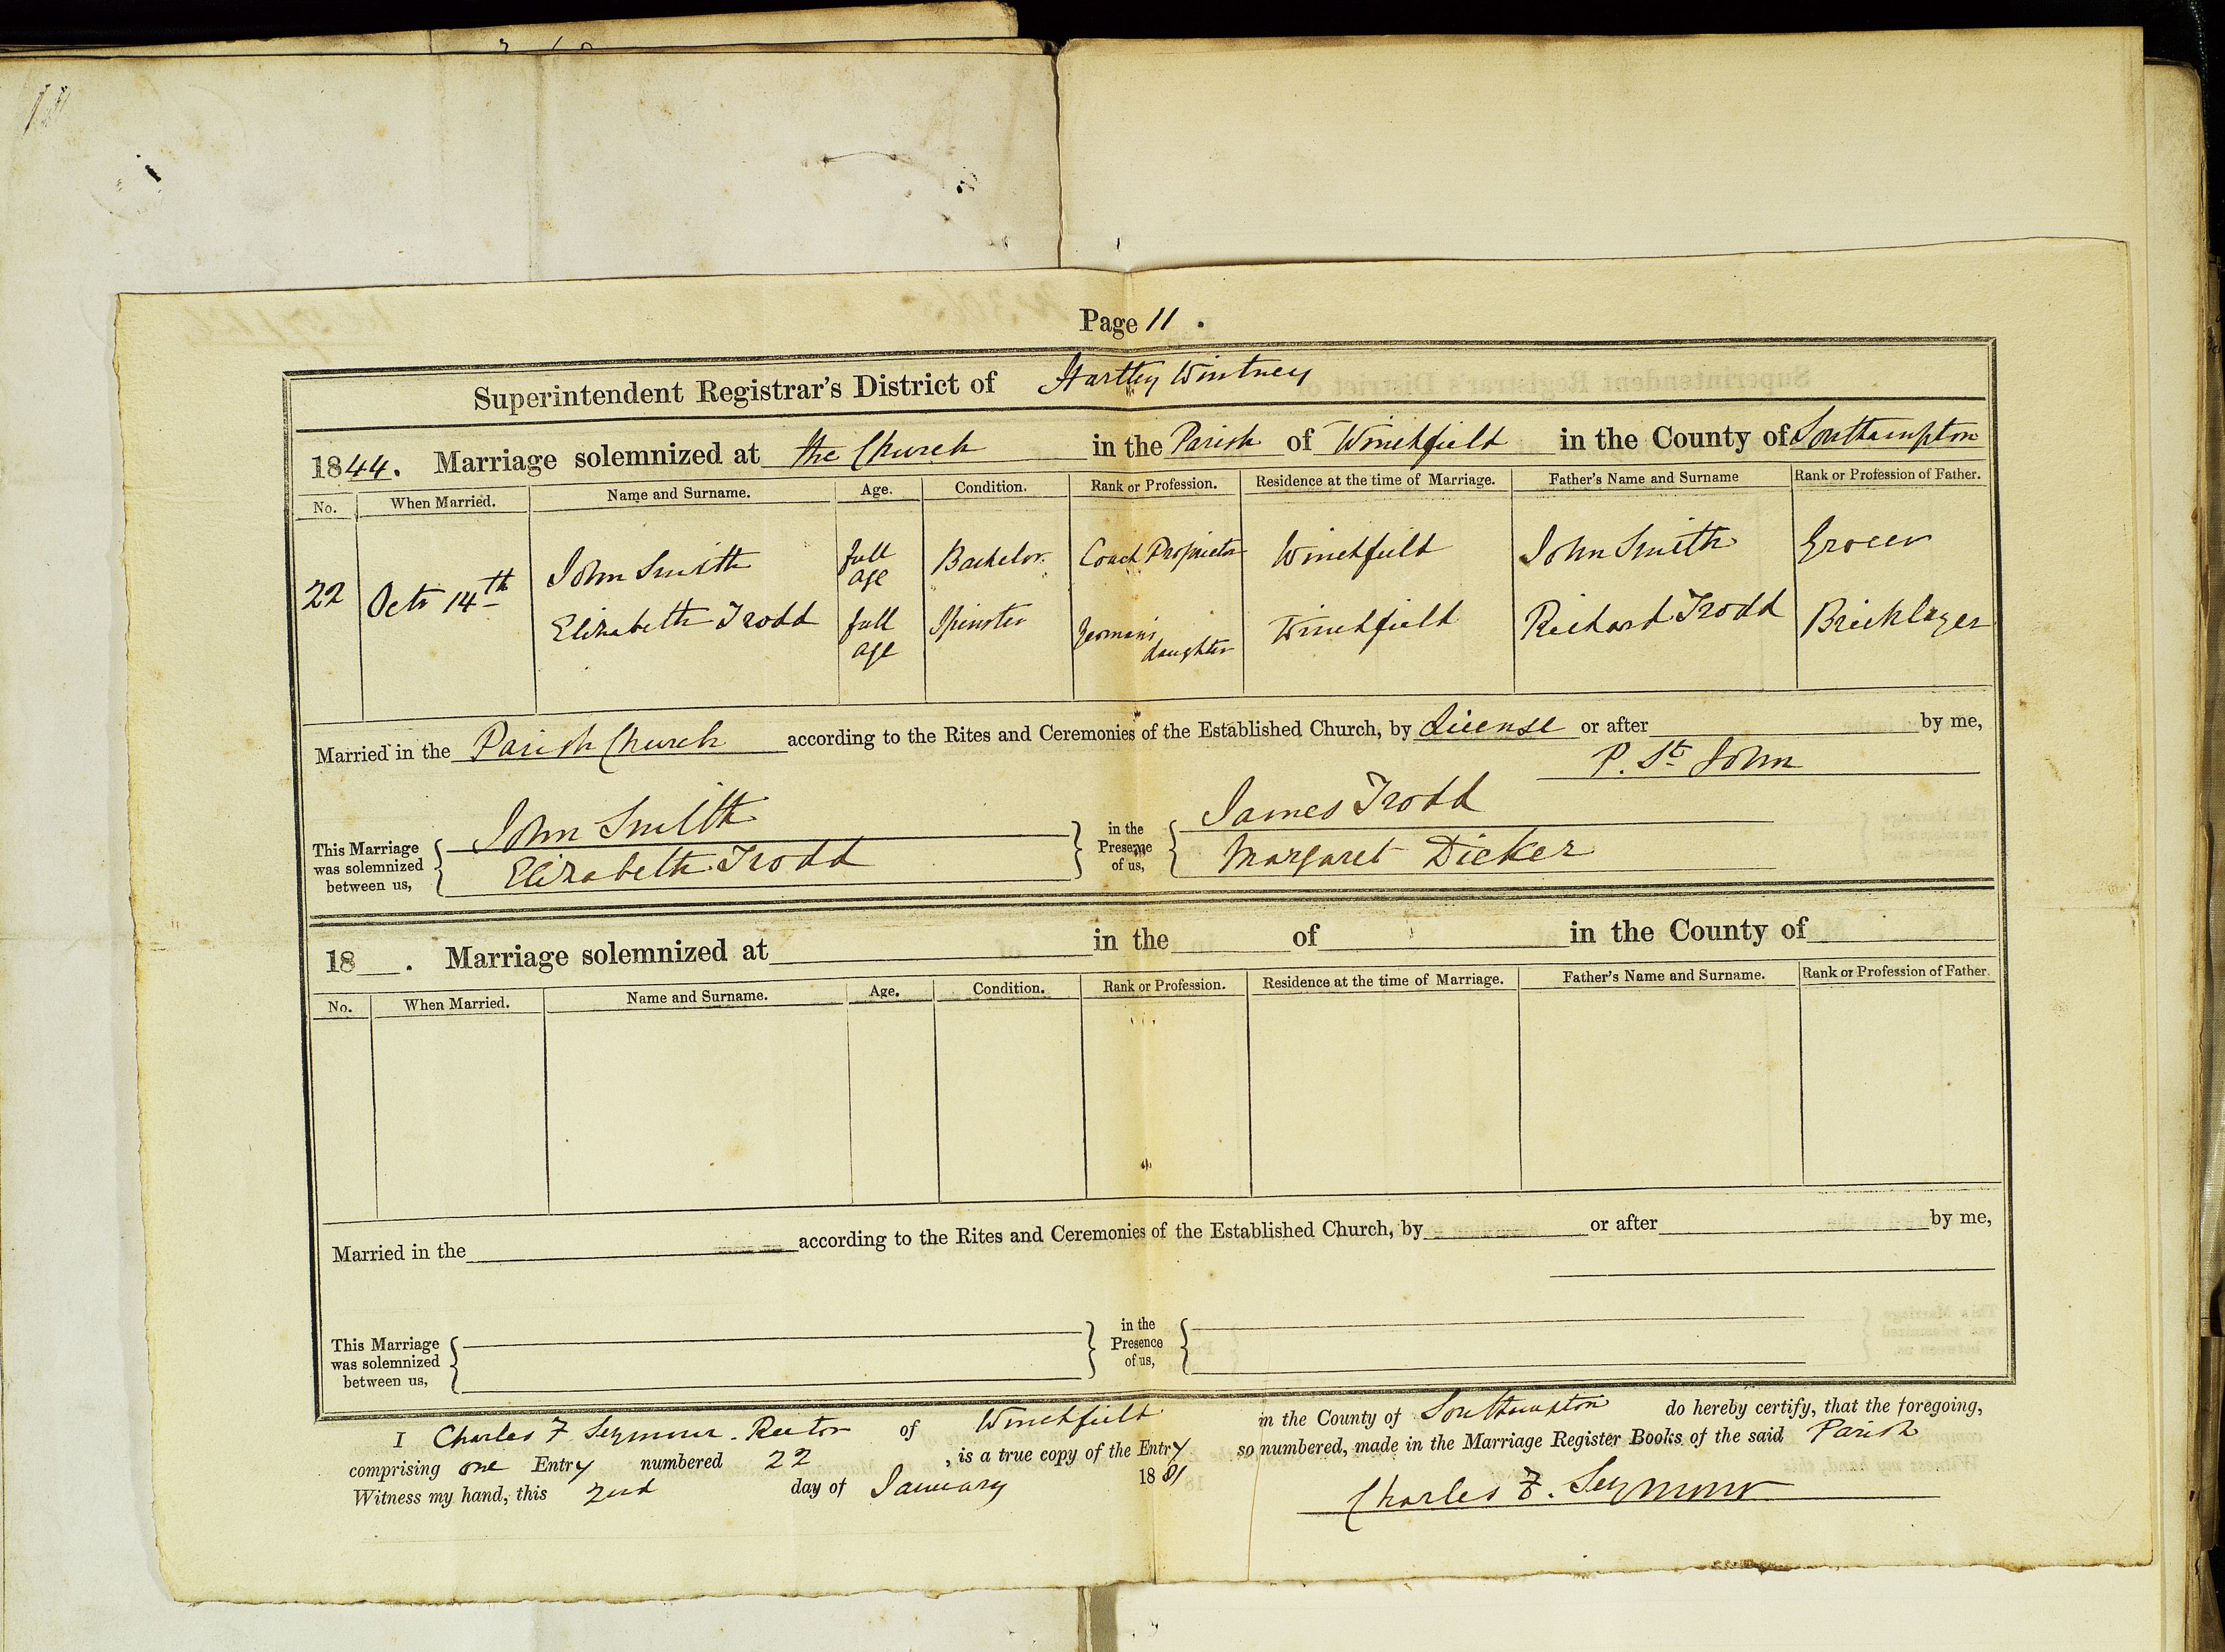 Page 11 .
Superintendent Registrar's District of Hartley Wintney
1844. Marriage solemnized at the Church in the Parish of Winchfield in the County of Southampton
No. When Married. Name and Surname. Age. Condition. Rank or Profession. Residence at the time of Marriage. Father's Name and Surname Rank or Profession of Father.
22 Octr 14th John Smith full age Bachelor. Coach Proprietor Winchfield John Smith Grocer
Elizabeth Trodd full age Spinster Yeoman's daughter Winchfield Richard Trodd Bricklayer
Married in the Parish Church according to the Rites and Ceremonies of the Established Church, by License or after by me,
P. St John
This Marriage was solemnized between us, John Smith Elizabeth Trodd in the Presence of us, James Trodd Margaret Dicker
18 . Marriage solemnized at in the of in the County of
No. When Married. Name and Surname. Age. Condition. Rank or Profession. Residence at the time of Marriage. Father's Name and Surname. Rank or Profession of Father.
Married in the according to the Rites and Ceremonies of the Established Church, by or after by me,
This Marriage was solemnized between us, in the Presence of us,
I Charles F Seymour. Rector of Winchfield in the County of Southampton do hereby certify, that the foregoing,
comprising one Entry numbered 22 , is a true copy of the Entry so numbered, made in the Marriage Register Books of the said Parish
Witness my hand, this 2nd day of January 1881 Charles F. Seymour